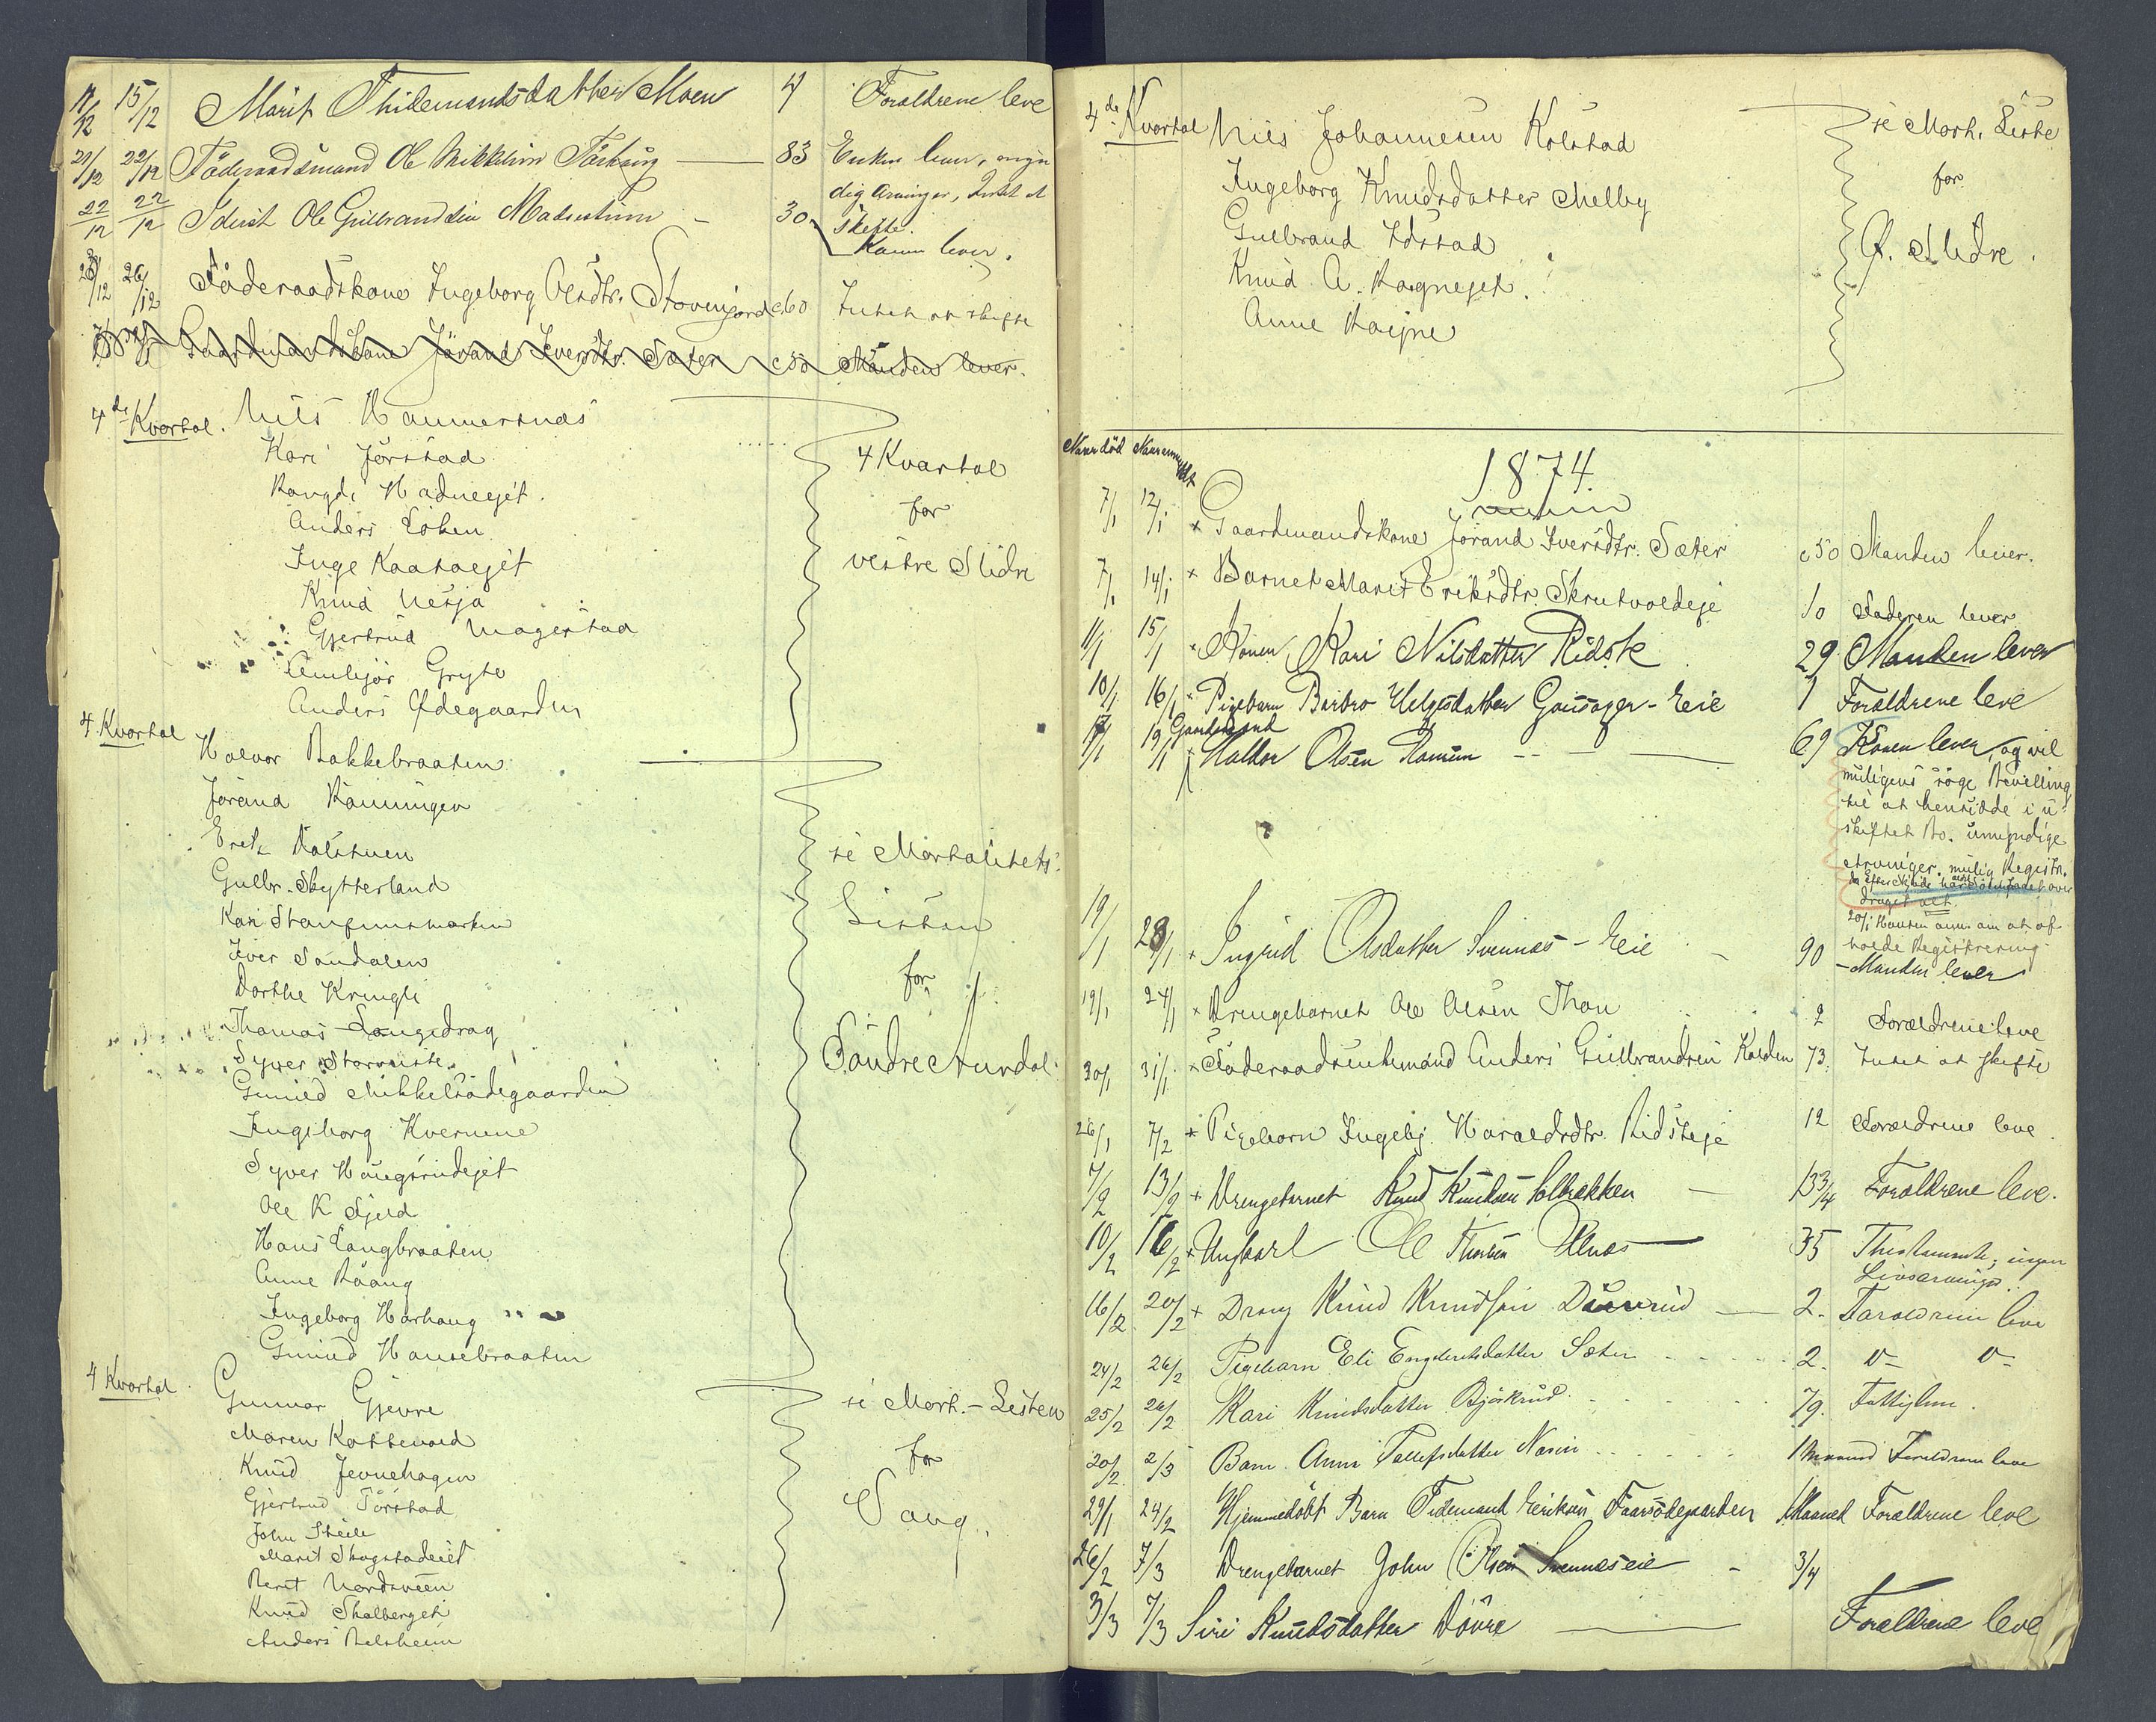 17/12 15/12 Marit Thidemandsdatter Moen 4 Forældrene leve
20/12 22/12 Föderaadsmand Ole Mikkelsen 83 Enken lever, myn
dig Arvinger, Intet at
skifte.
22/12 22/12 Idiot Ole Gulbrandsen 30 Konen lever.
23/12 26/12 Föderaadskone Ingeborg Olsdtr. Stovenjord c60 Intet at skifte
Gaardmandskone Jörand Iversdtr. Sæter c50 Manden lever.
4de Kvartal. Nils Hammersnæs
Kari Jörstad
4 Kvartal
Rangdi
Anders Löken
for
Inge Kaataejet
vestre Slidre
Knud Nesja
Gjertrud Magerstad
Gryte
Anders Ödegaarden
4 Kvartal Halvor Bakkebraaten
Jörand Rönningen
Kolstuen
se Mortalitets
Gulbr. Skytterland
Listen
Kari
Iver Sandalen
for
Dorthe Kringli
Thomas Langedrag
Syver Storruste
Söndre Aurdal
Gunild Mikkelsödegaarden
Ingeborg Kvernene
Syver Haugsrudejet
Ole K Fjeld
Hans Langbraaten
Anne Raang
Ingeborg Harhaug
Gunild Hansebraaten
4 Kvartal Gunnar Gjevre
se Mort.-Listen
Maren Kattevold
for
Knud Jevnehagen
Gjertrud Törstad
Vang.
John Steile
Marit Skogstadeiet
Beret Nordsveen
Knud Skalberget
Anders Belsheim
4de Kvartal Nils Johannesen Kolstad
se Mort. Liste
Ingeborg Knudsdatter Melby
for
Gulbrand Idstad
Ö. Slidre.
Knud A. Rognejet.
Anne Rogne
Naar död Naar anmeldt
1874
7/1 12/1 x Gaardmandskone Jörand Iversdtr. Sæter c50 Manden lever.
7/1 14/1 x Barnet Marit Eriksdtr. Skrutvoldeje 10 Faderen lever
11/1 15/1 x Konen Kari Nilsdatter Ridste 29 Manden lever
10/1 16/1 x Pigebarn Barbro Helgesdatter Gausager-Eie 1 Forældrene leve
Gaardmand
17/1 19/1 x Haldor Olsen 69 Konen lever, og vil
muligens söge Bevilling
til at hensidde i u-
skiftet Bo. umyndige
Arvinger. mulig Registr.
draget alt.
20/1 Konen anm. om at af-
holde Registrering
19/1 23/1 x Ingrid Olsdatter Svennæs-Eie 90 - Manden lever
19/1 24/1 x Drengebarnet Ole Olsen Thon 2 Forældrene leve
30/1 31/1 x Föderaadsenkemand Anders Gulbrandsen Kolden 73. Intet at skifte
26/1 7/2 x Pigebarn Ingebj. Haraldsdtr. Ridsteje 12 Forældrene leve.
7/2 13/2 x Drengebarnet Knud Knudsen Solbrekken 13 3/4 Forældrene leve.
10/2 16/2 x Ungkarl Ole Ulnæs 35 ingen
Livsarvinger.
16/2 20/2 x Dreng Knud Knudsen 2. Forældrene leve
24/2 26/2 Pigebarn Eli Engebretsdatter Sæter 2. D- D-
25/2 26/2 Kari Knudsdatter Björkrud 79. Fattiglem.
20/2 2/3 Barn Anne 1 Maaned Forældrene leve
29/1 24/2 Hjemmedöbt Barn Tidemand Eriksen Faarsödegaarden 1 Maaned Forældrene leve
26/2 7/3 Drengebarnet John Olsen Svennæseie 3/4
3/3 7/3 Siri Knudsdatter Dövre Forældrene leve